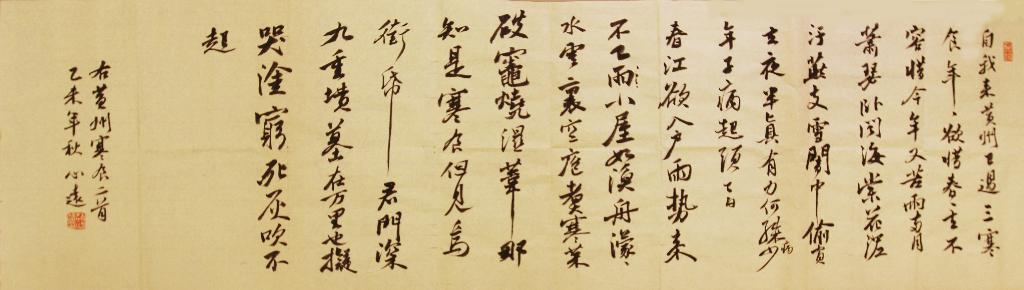 自我来黄州已過三寒
食年〻欲惜春去不
容惜今年又苦雨兩月
蕭瑟卧聞海棠花泥
汙燕支雪闇中偷負
去夜半真有力何殊少病
年子病起頭已白
春江欲入户雨勢来
不已雨小屋如漁舟濛〻
水雲裏空庖煮寒菜
破竈燒濕葦那
知是寒食但見烏
銜帋君門深
九重墳墓在万里也擬
哭塗窮死灰吹不
起
右黄州寒食二首
乙未年秋心遠